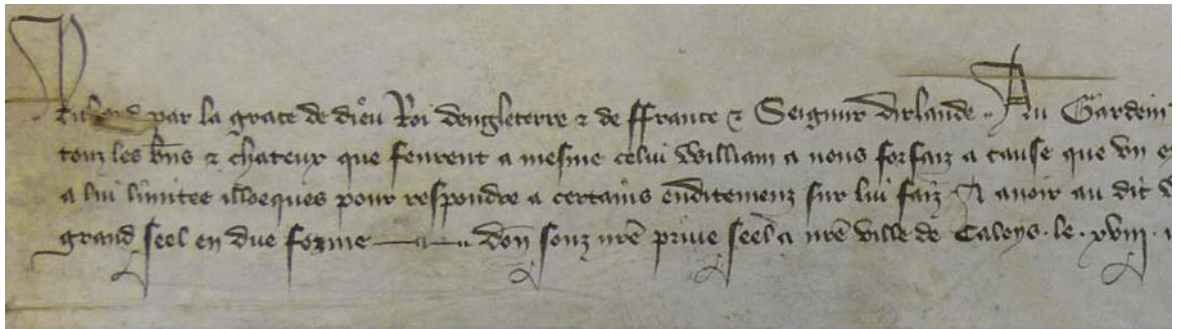 Richard par la grace de dieu Roi dengleterre & de ffrance & Seignur dirlande Au Gardein
touz les bñs & chateux que feurent a mesme celui William a nous forfaiz a cause que un
a lui limitee illoeques pour respondre a certains enditemenz sur lui faiz A avoir au dit
grand seel en due forme Don souz nre prive seel a nre ville de Caleys le xviii